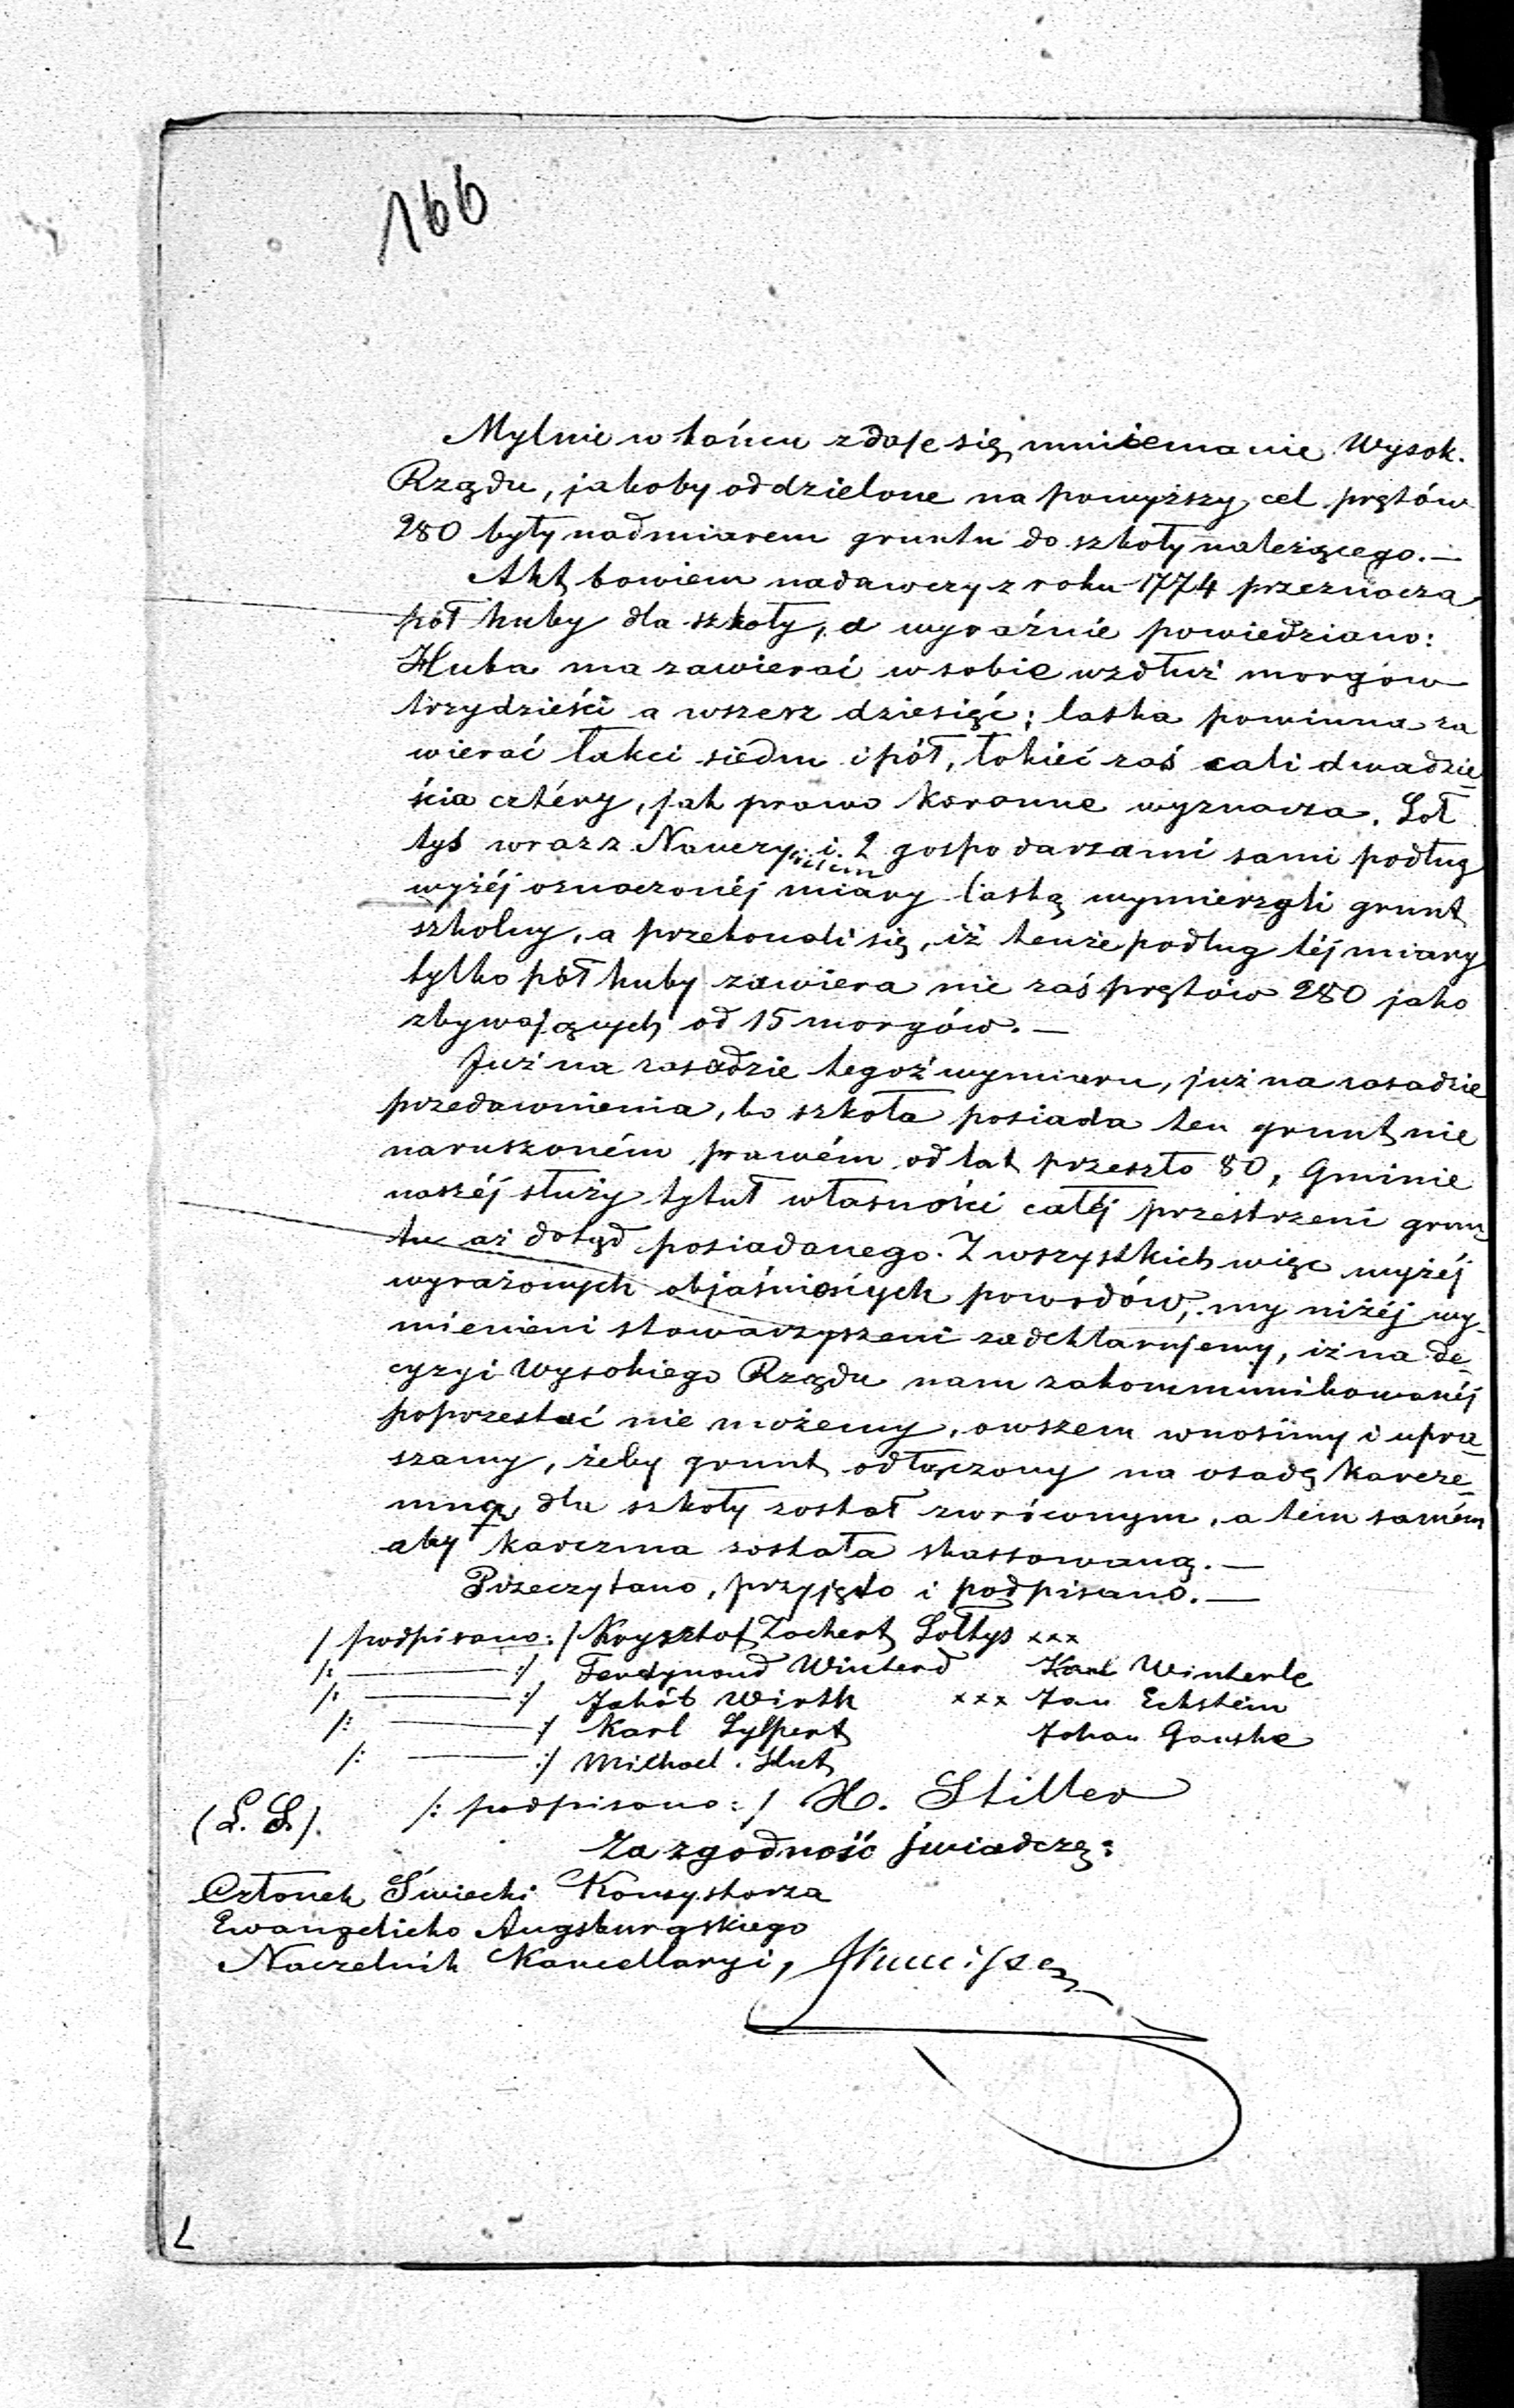 166
Mylnie w końcu zdaje się mniemanie Wysok.
Rządu, jakoby oddzielone na powyższy cel prętów
280 były nadmiarem gruntu do szkoły należącego. —
Akt bowiem nadawczy z roku 1774 przeznacza
pół huby dla szkoły, a wyraźnie powiedziano:
Huba ma zawierać w sobie wzdłuż morgów
trzydzieści a wszerz dziesięć; laska powinna za
wierać łakci siedm i pół, łokieć zaś cali dwadzie-
ścia cztéry, jak prawo koronne wyznacza. Soł
tys wraz z Nauczycielem i 2 gospodarzami sami podług
wyżéj oznaczonéj miary laską wymierzyli grunt
szkolny, a przekonali się, iż tenże podług téj miary
tylko pół huby zawiera nie zaś prętów 280 jako
zbywających od 15 morgów. —
Już na zasadzie tegoż wymiaru, już na zasadzie
przedawnienia, bo szkoła posiada ten grunt nie
naruszoném prawém od lat przeszło 80, Gminie
naszéj służy tytuł własności całéj przestrzeni grun
tu aż dotąd posiadanego. Z wszystkich więc wyżéj
wyrażonych objaśnionych powodów, my niżéj wy-
mienieni stowarzyszeni zadeklarujemy, iż na de-
cyzyi Wysokiego Rządu nam zakommunikowanéj
poprzestać nie możemy, owszem wnosimy i upra-
szamy, żeby grunt odłączony na osadę karcze-
mną dla szkoły został zwróconym, a tem samém
aby karczma została skassowaną. —
Przeczytano, przyjęto i podpisano. —
/ podpisano: / Krysztof Zachert Sołtys xxx
/: — :/ Ferdynand Winterd Karl Winterle
/: — :/ Jakób Wirth xxx Jan Eckstein
/: — :/ Karl Sylpert Johan Ganske
/: — :/ Michael Hut
(L. S.). /: podpisano: / H. Stiller
Za zgodność świadczę:
Członek Świecki Konsystorza
Ewangelicko Augsburgskiego
Naczelnik Kancellaryi,
L